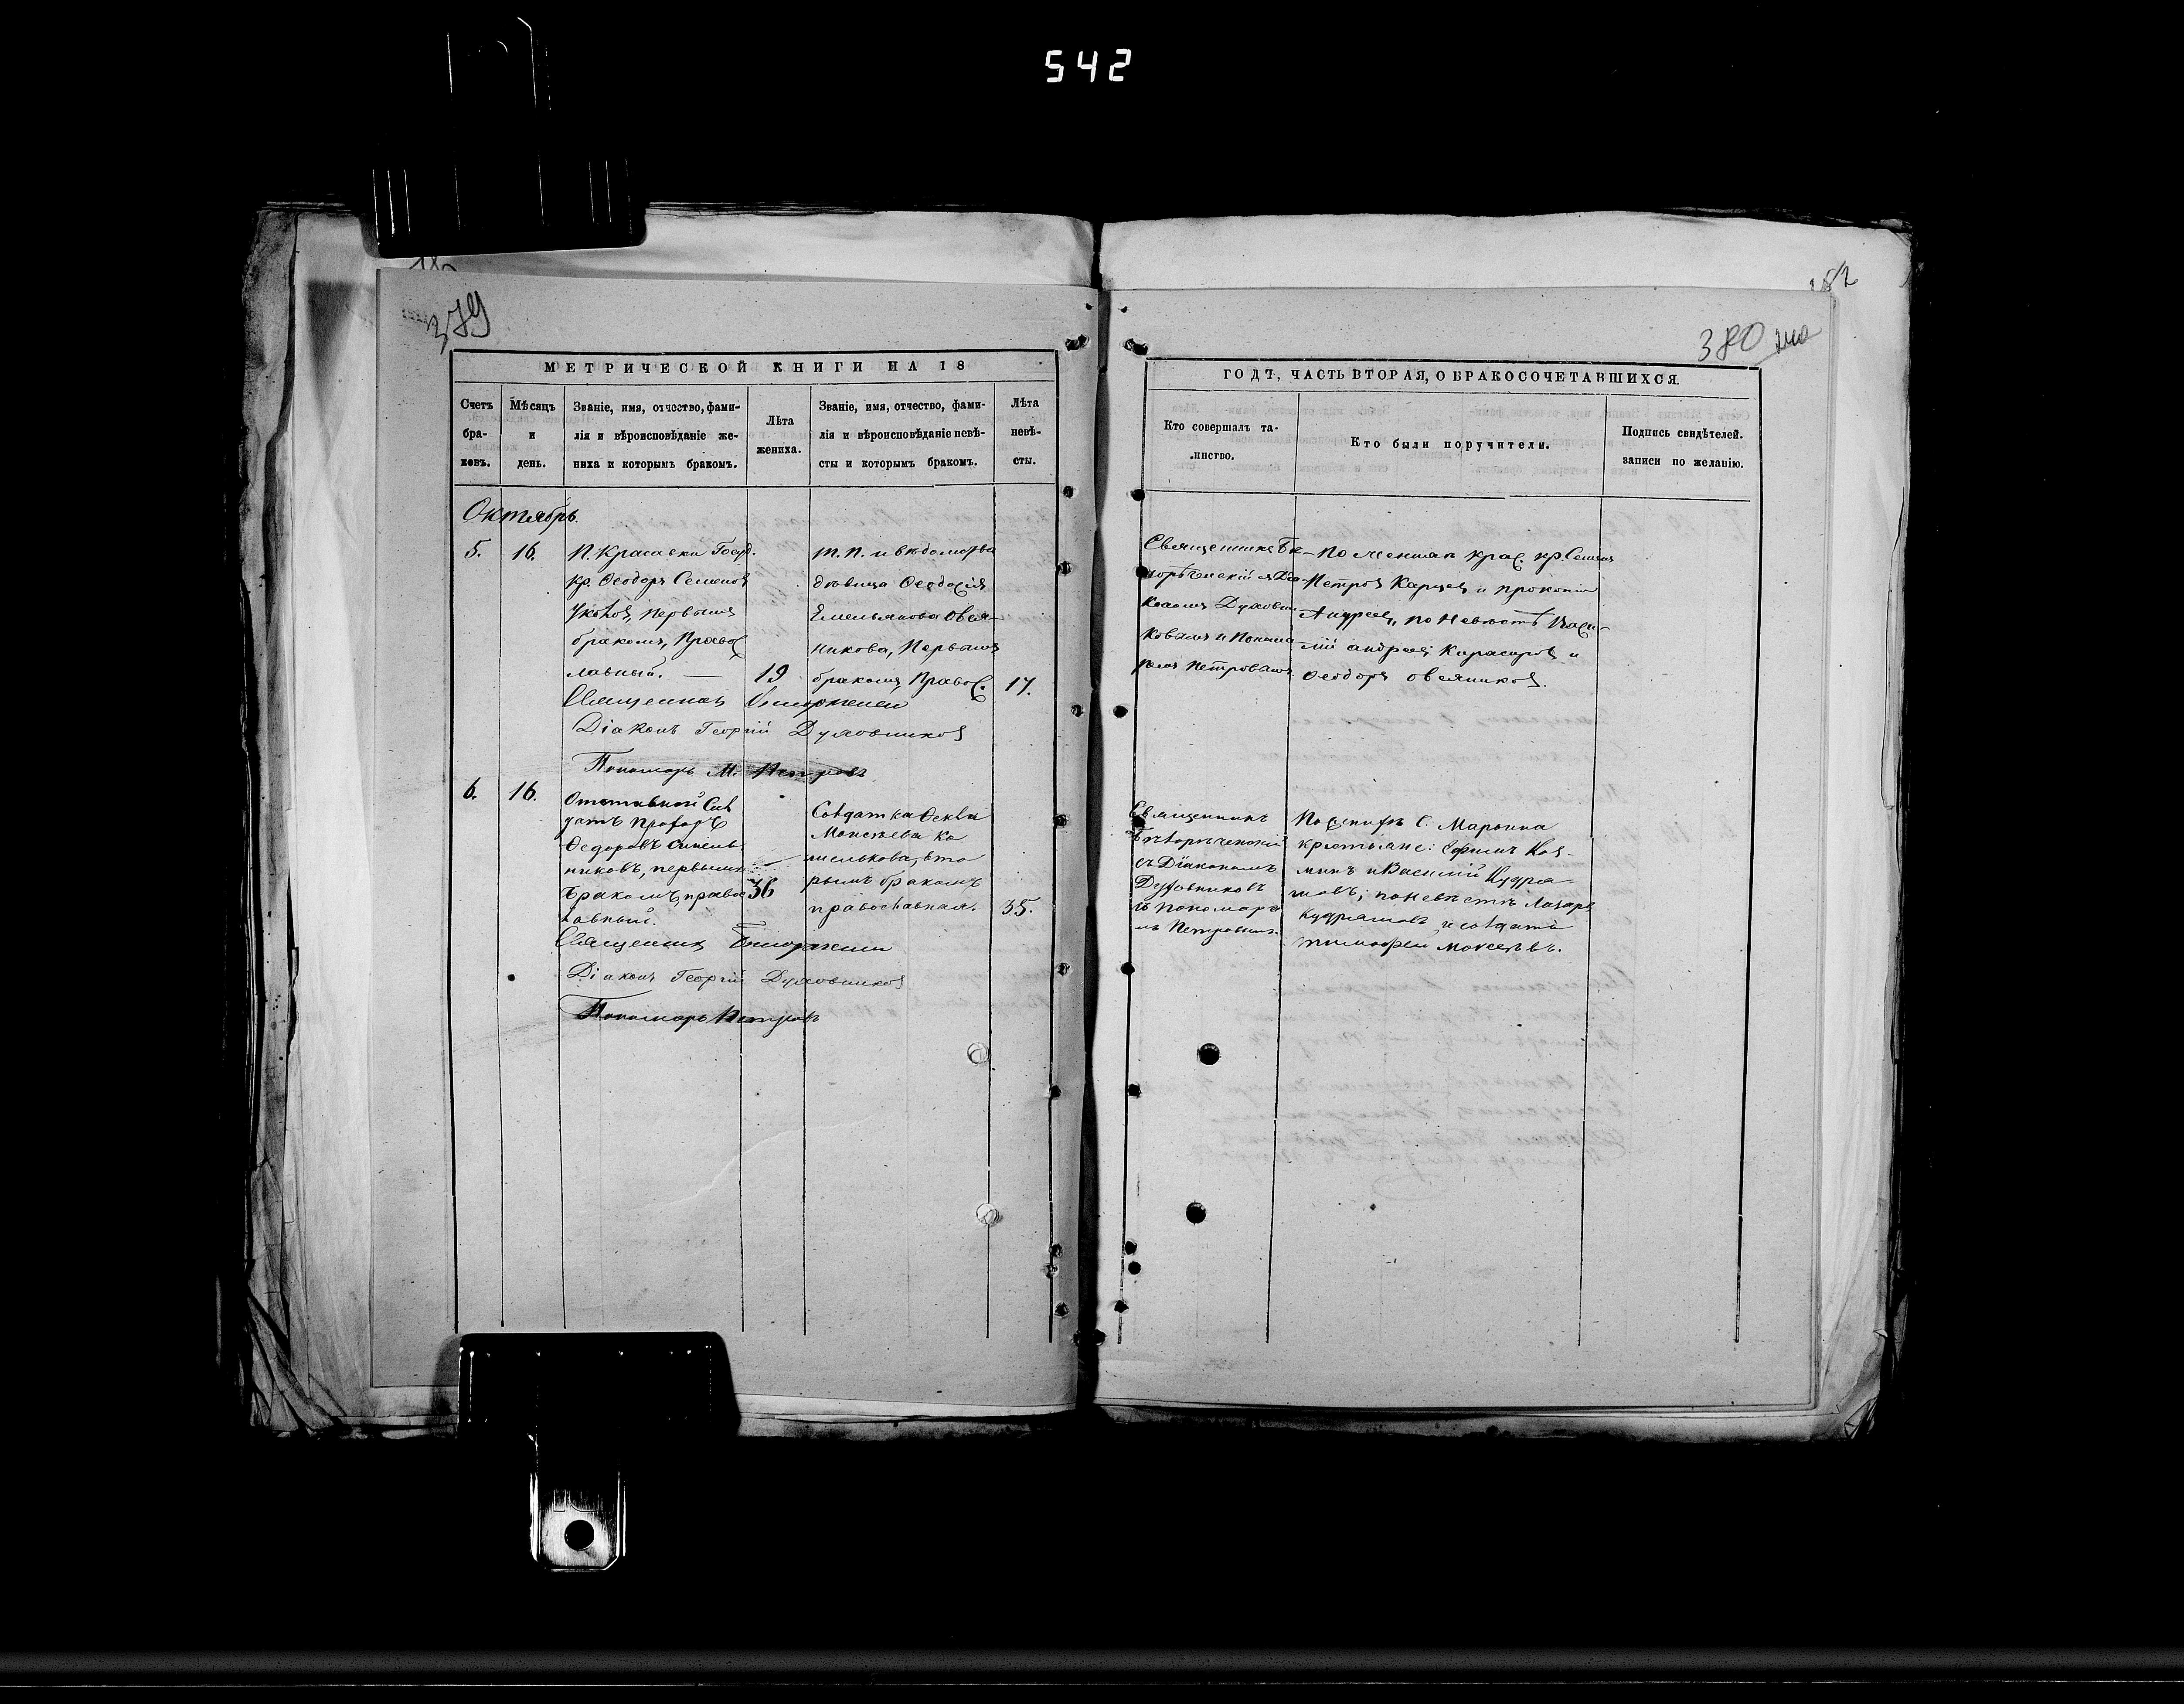 542
182
379
380
МЕТРИЧЕСКОЙ КНИГИ НА 18
Счетъ бра-ковъ.
Мѣсяцъ и день.
Званіе, имя, отчество, фами-
лія и вѣроисповѣданіе же-
ниха и которымъ бракомъ.
Лѣта
жениха.
Званіе, имя, отчество, фами-
лія и вѣроисповѣданіе невѣ-
сты и которымъ бракомъ.
Лѣта
невѣ-
сты.
Октябрь.
5.
16.
П. Красавки Госуд.
кр. Ѳеодоръ Семеновъ
первымъ
бракомъ, Правос
лавный. —
19
т. п. и вѣдомства
дѣвица Ѳеодосія
Емельянова Овсян-
никова, Первымъ
бракомъ, Правос.
17.
Священникъ
Діаконъ Георгій Духовниковъ
Пономарь М. Петровъ
6.
16.
Отставной Сол
датъ
Ѳедоровъ Синель
никовъ, первымъ
бракомъ, правос
лавный.
36
Солдатка Ѳекла
Моисѣева Ко
шелькова, вто
рымъ бракомъ
православная.
35.
Священникъ
Діаконъ Георгій Духовниковъ
Пономарь Петровъ
ГОДЪ, ЧАСТЬ ВТОРАЯ, О БРАКОСОЧЕТАВШИХСЯ.
Кто совершалъ та-
инство.
Кто были поручители.
Подпись свидѣтелей.
записи по желанію.
Священникъ Бѣ-
діа-
кономъ Духовни
ковымъ и Понома
ремъ Петровымъ
По женихѣ крас. кр. Семенъ
Петровъ Карцевъ и Прокопій
Андреевъ, по невѣстѣ Васи-
лій Андреевъ и
Ѳеодоръ Овсянниковъ.
Священникъ
съ Діакономъ
Духовниковъ
съ пономаре
мъ Петровымъ.
По женихѣ с. Марьина
крестьяне: Ефимъ Коз-
минъ и Василій Кудря
шовъ; по невѣстѣ Лазарь
Кудряшовъ и солдатъ
Тимофей Моисеевъ.